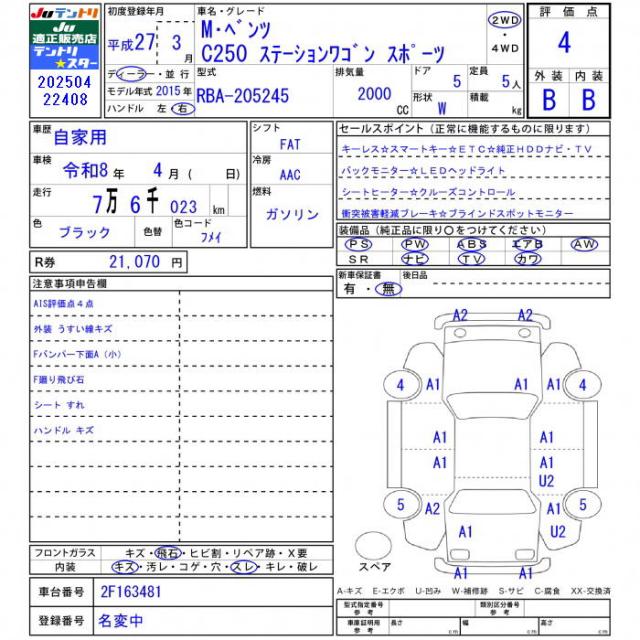 JUテントリ
JU
適正販売店
テントリ
★スター
202504
22408
初度登録年月
平成27年 3月
車名・グレード
M・ベンツ
C250 ステーションワゴン スポーツ
2WD
・
4WD
評価点
4
外装 内装
B B
ディーラー・並行
モデル年式 2015年
ハンドル 左・右
型式
RBA-205245
排気量
2000 CC
ドア 5
形状 W
定員 5人
積載 kg
車歴 自家用
車検 令和8年 4月( 日)
走行 7万6千023 km
色 ブラック 色替 色コード フメイ
シフト
FAT
冷房
AAC
燃料
ガソリン
セールスポイント(正常に機能するものに限ります)
キーレス☆スマートキー☆ETC☆純正HDDナビ・TV
バックモニター☆LEDヘッドライト
シートヒーター☆クルーズコントロール
衝突被害軽減ブレーキ☆ブラインドスポットモニター
装備品(純正品に限り○をつけてください)
PS PW ABS エアB AW
SR ナビ TV カワ
新車保証書 後日品
有・無
R券 21,070 円
注意事項申告欄
AIS評価点4点
外装 うすい線キズ
Fバンパー下面A(小)
F廻り飛び石
シート すれ
ハンドル キズ
A2 A2
4 A1 A1 A1 4
A1 A1
A1 A1
U2
5 A2 A1 A1 U2 5
スペア
フロントガラス キズ・飛石・ヒビ割・リペア跡・X要
内装 キズ・汚レ・コゲ・穴・スレ・キレ・破レ
A-キズ E-エクボ U-凹み W-補修跡 S-サビ C-腐食 XX-交換済
車台番号 2F163481
登録番号 名変中
型式指定番号 類別区分番号
車庫証明用参考 長さ cm 幅 cm 高さ cm